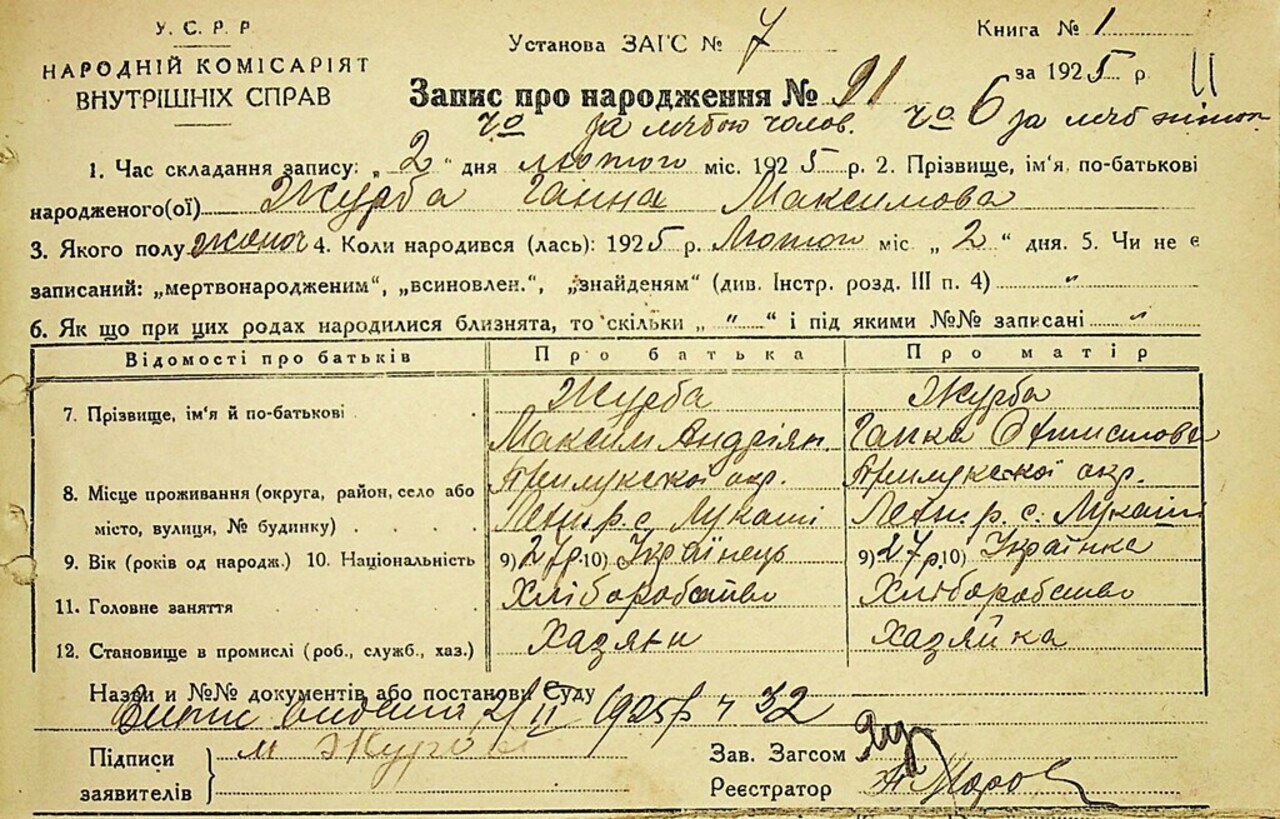 У. С. Р. Р
НАРОДНІЙ КОМІСАРІЯТ
ВНУТРІШНІХ СПРАВ
Установа ЗАГС № 7
Книга № 1
за 1925 р.
11
Запис про народження № 91
чо за лічбою чолов. чо 6 за лічб жіноч
1. Час складання запису: „ 2 “ дня лютого міс. 1925 р. 2. Прізвище, ім'я, по-батькові
народженого(ої) Журба Ганна Максимова
3. Якого полу жіноч 4. Коли народився (лась): 1925 р. Лютого міс „ 2 “ дня. 5. Чи не є
записаний: „мертвонародженим“, „всиновлен.“, „знайденям“ (див. Інстр. розд. III п. 4) "
6. Як що при цих родах народилися близнята, то скільки „ " “ і під якими №№ записані "
Відомості про батьків Про батька Про матір
7. Прізвище, ім'я й по-батькові Журба Журба
Максим Андріян. Гапка
8. Місце проживання (округа, район, село або Прилукської окр. Прилукської окр.
місто, вулиця, № будинку) р. с. Лукаші р. с. Лукаші
9. Вік (років од народж.) 10. Національність 9) 27 р. 10) Українець 9) 27 р. 10) Українка
11. Головне заняття Хліборобство Хліборобство
12. Становище в промислі (роб., служб., хаз.) Хазяин Хазяйка
Назви и №№ документів або постанови Суду
Випис видана 2/II 1925 р ч 32
Підписи
заявителів
м Журба
Зав. Загсом
Реєстратор